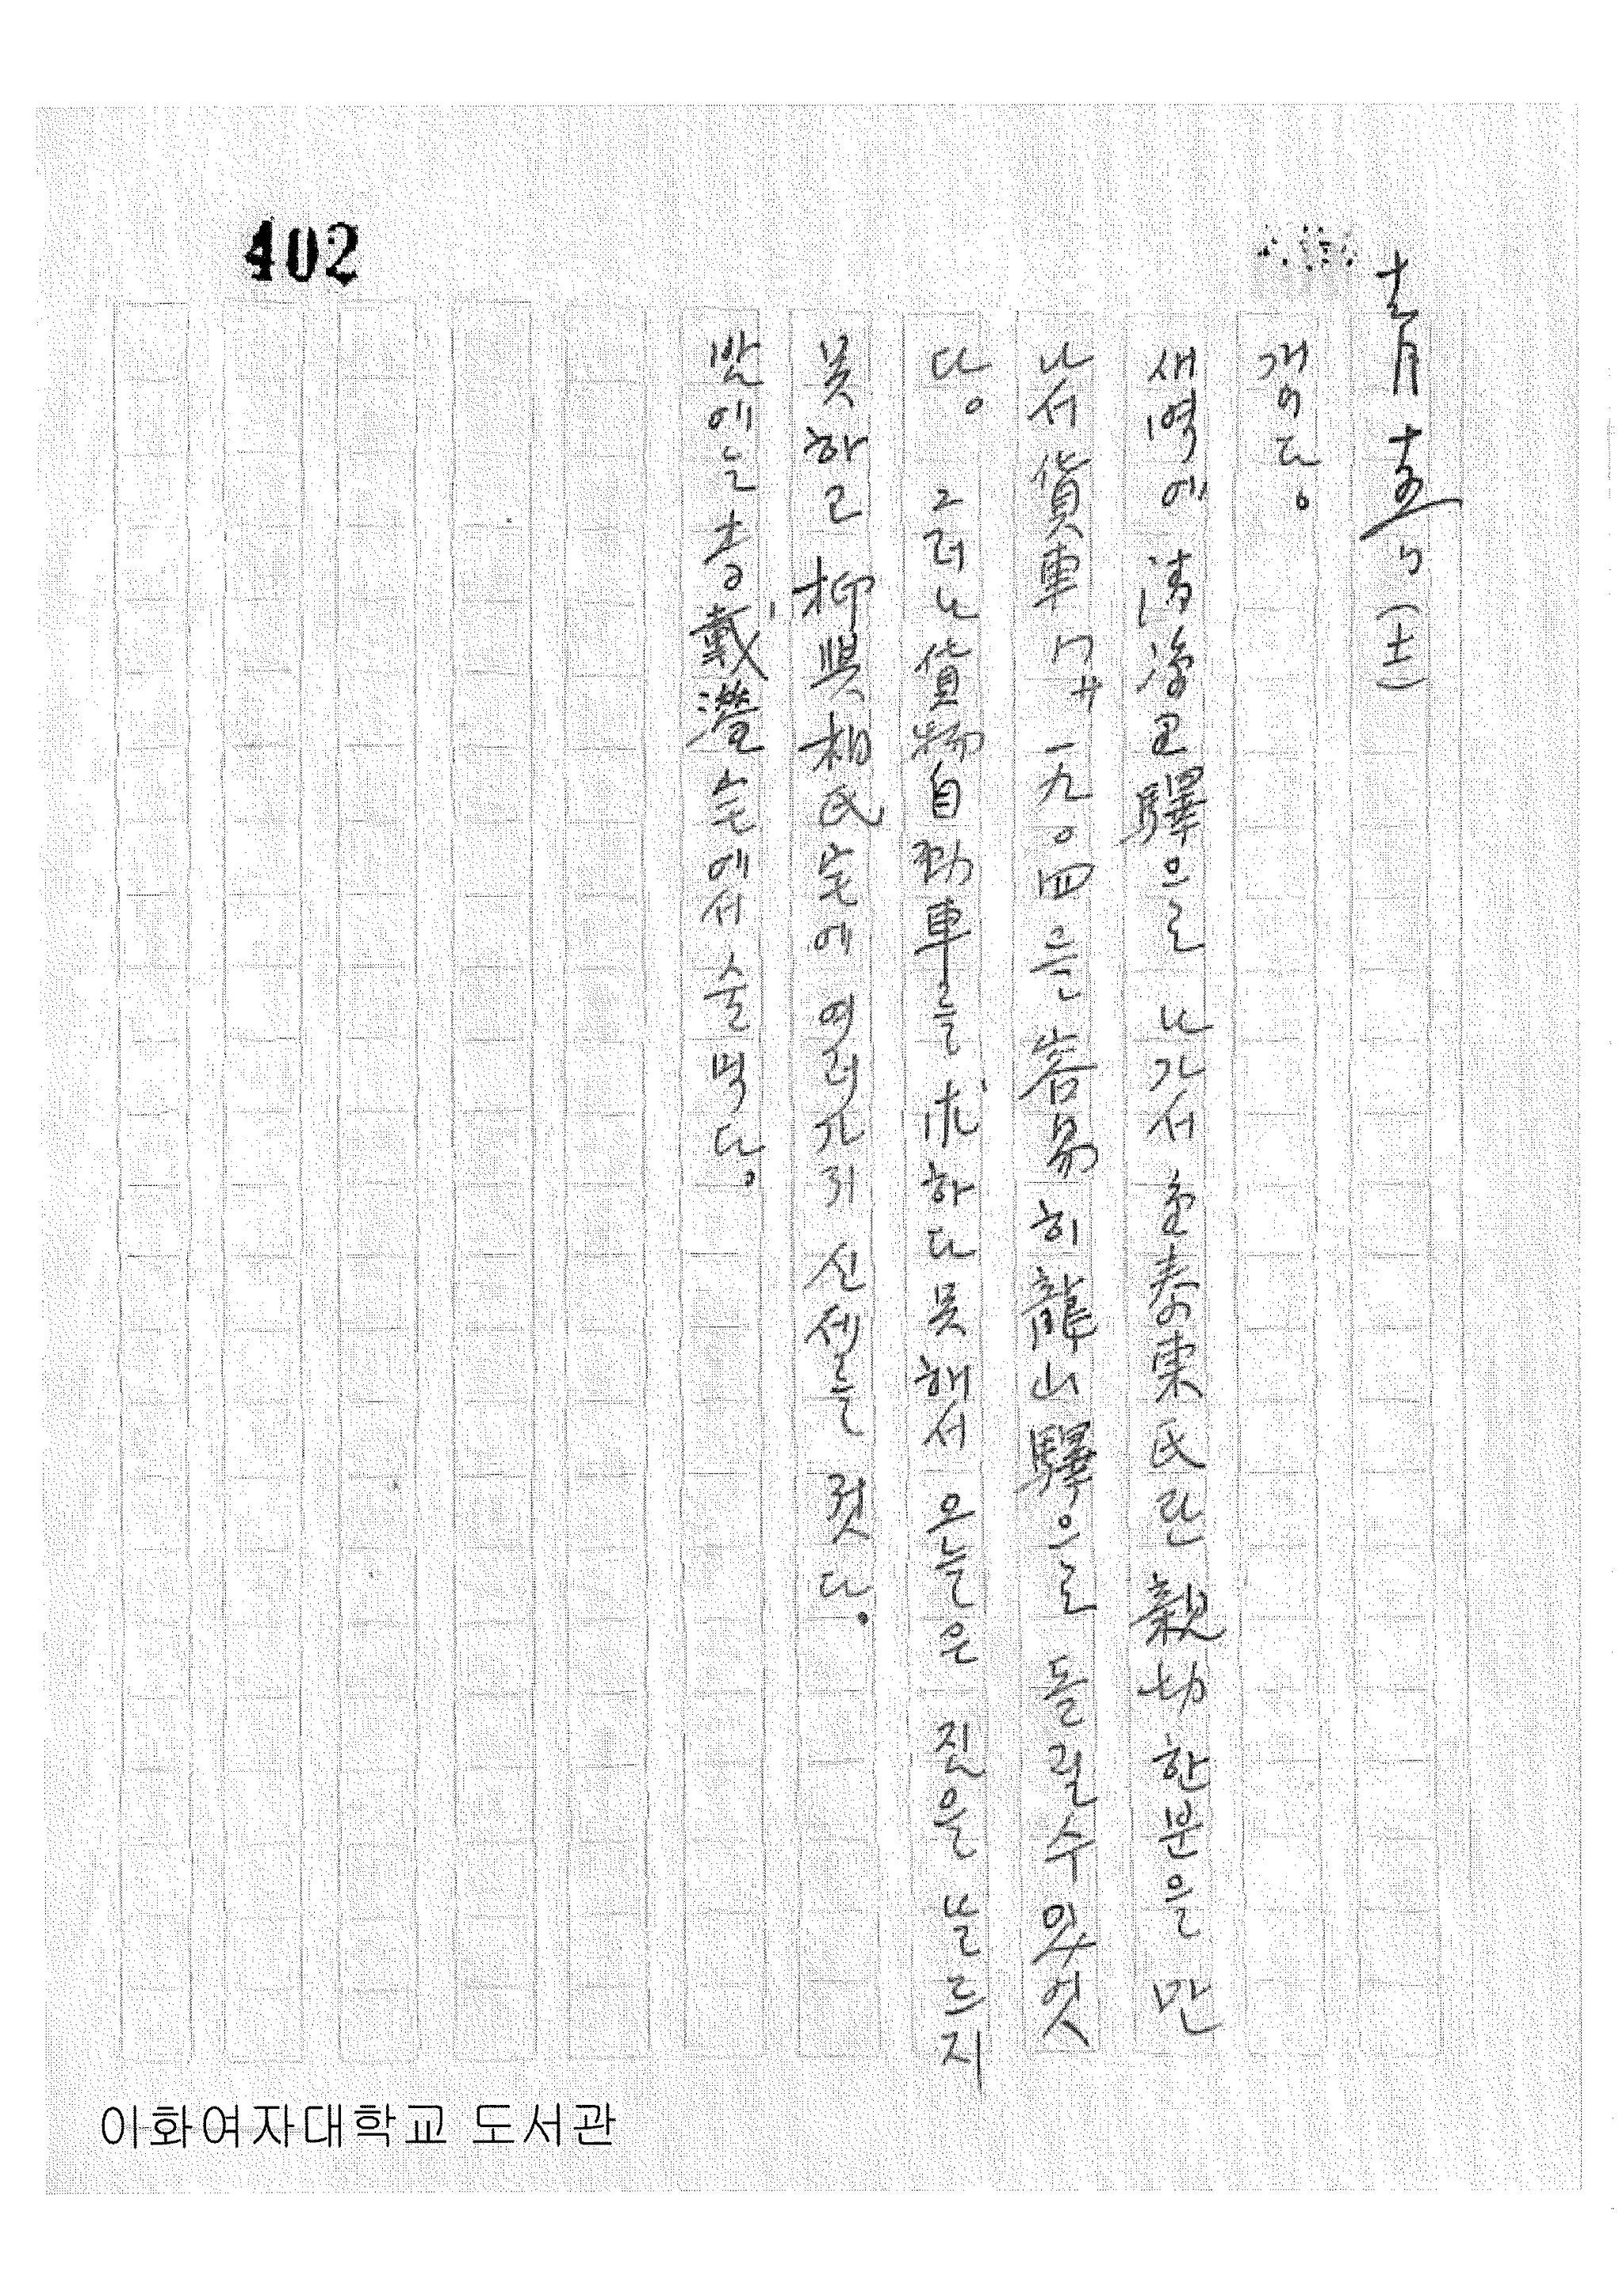 402
十一月 十五日 (土)
개이다。
새벽에 淸凉里驛으로 나가서 金泰東氏란 親切한분을 만
나서 貨車 ワ 一九〇四 는 容易히 龍山驛으로 돌릴수있엇
다。 그러나 貨物自動車를 求하다못해서 오늘은 짐을 날르지
못하고 柳興相氏宅에 여러가지 신세를 젓다。
밤에는 李載瀅宅에서 술먹다。
이화여자대학교 도서관